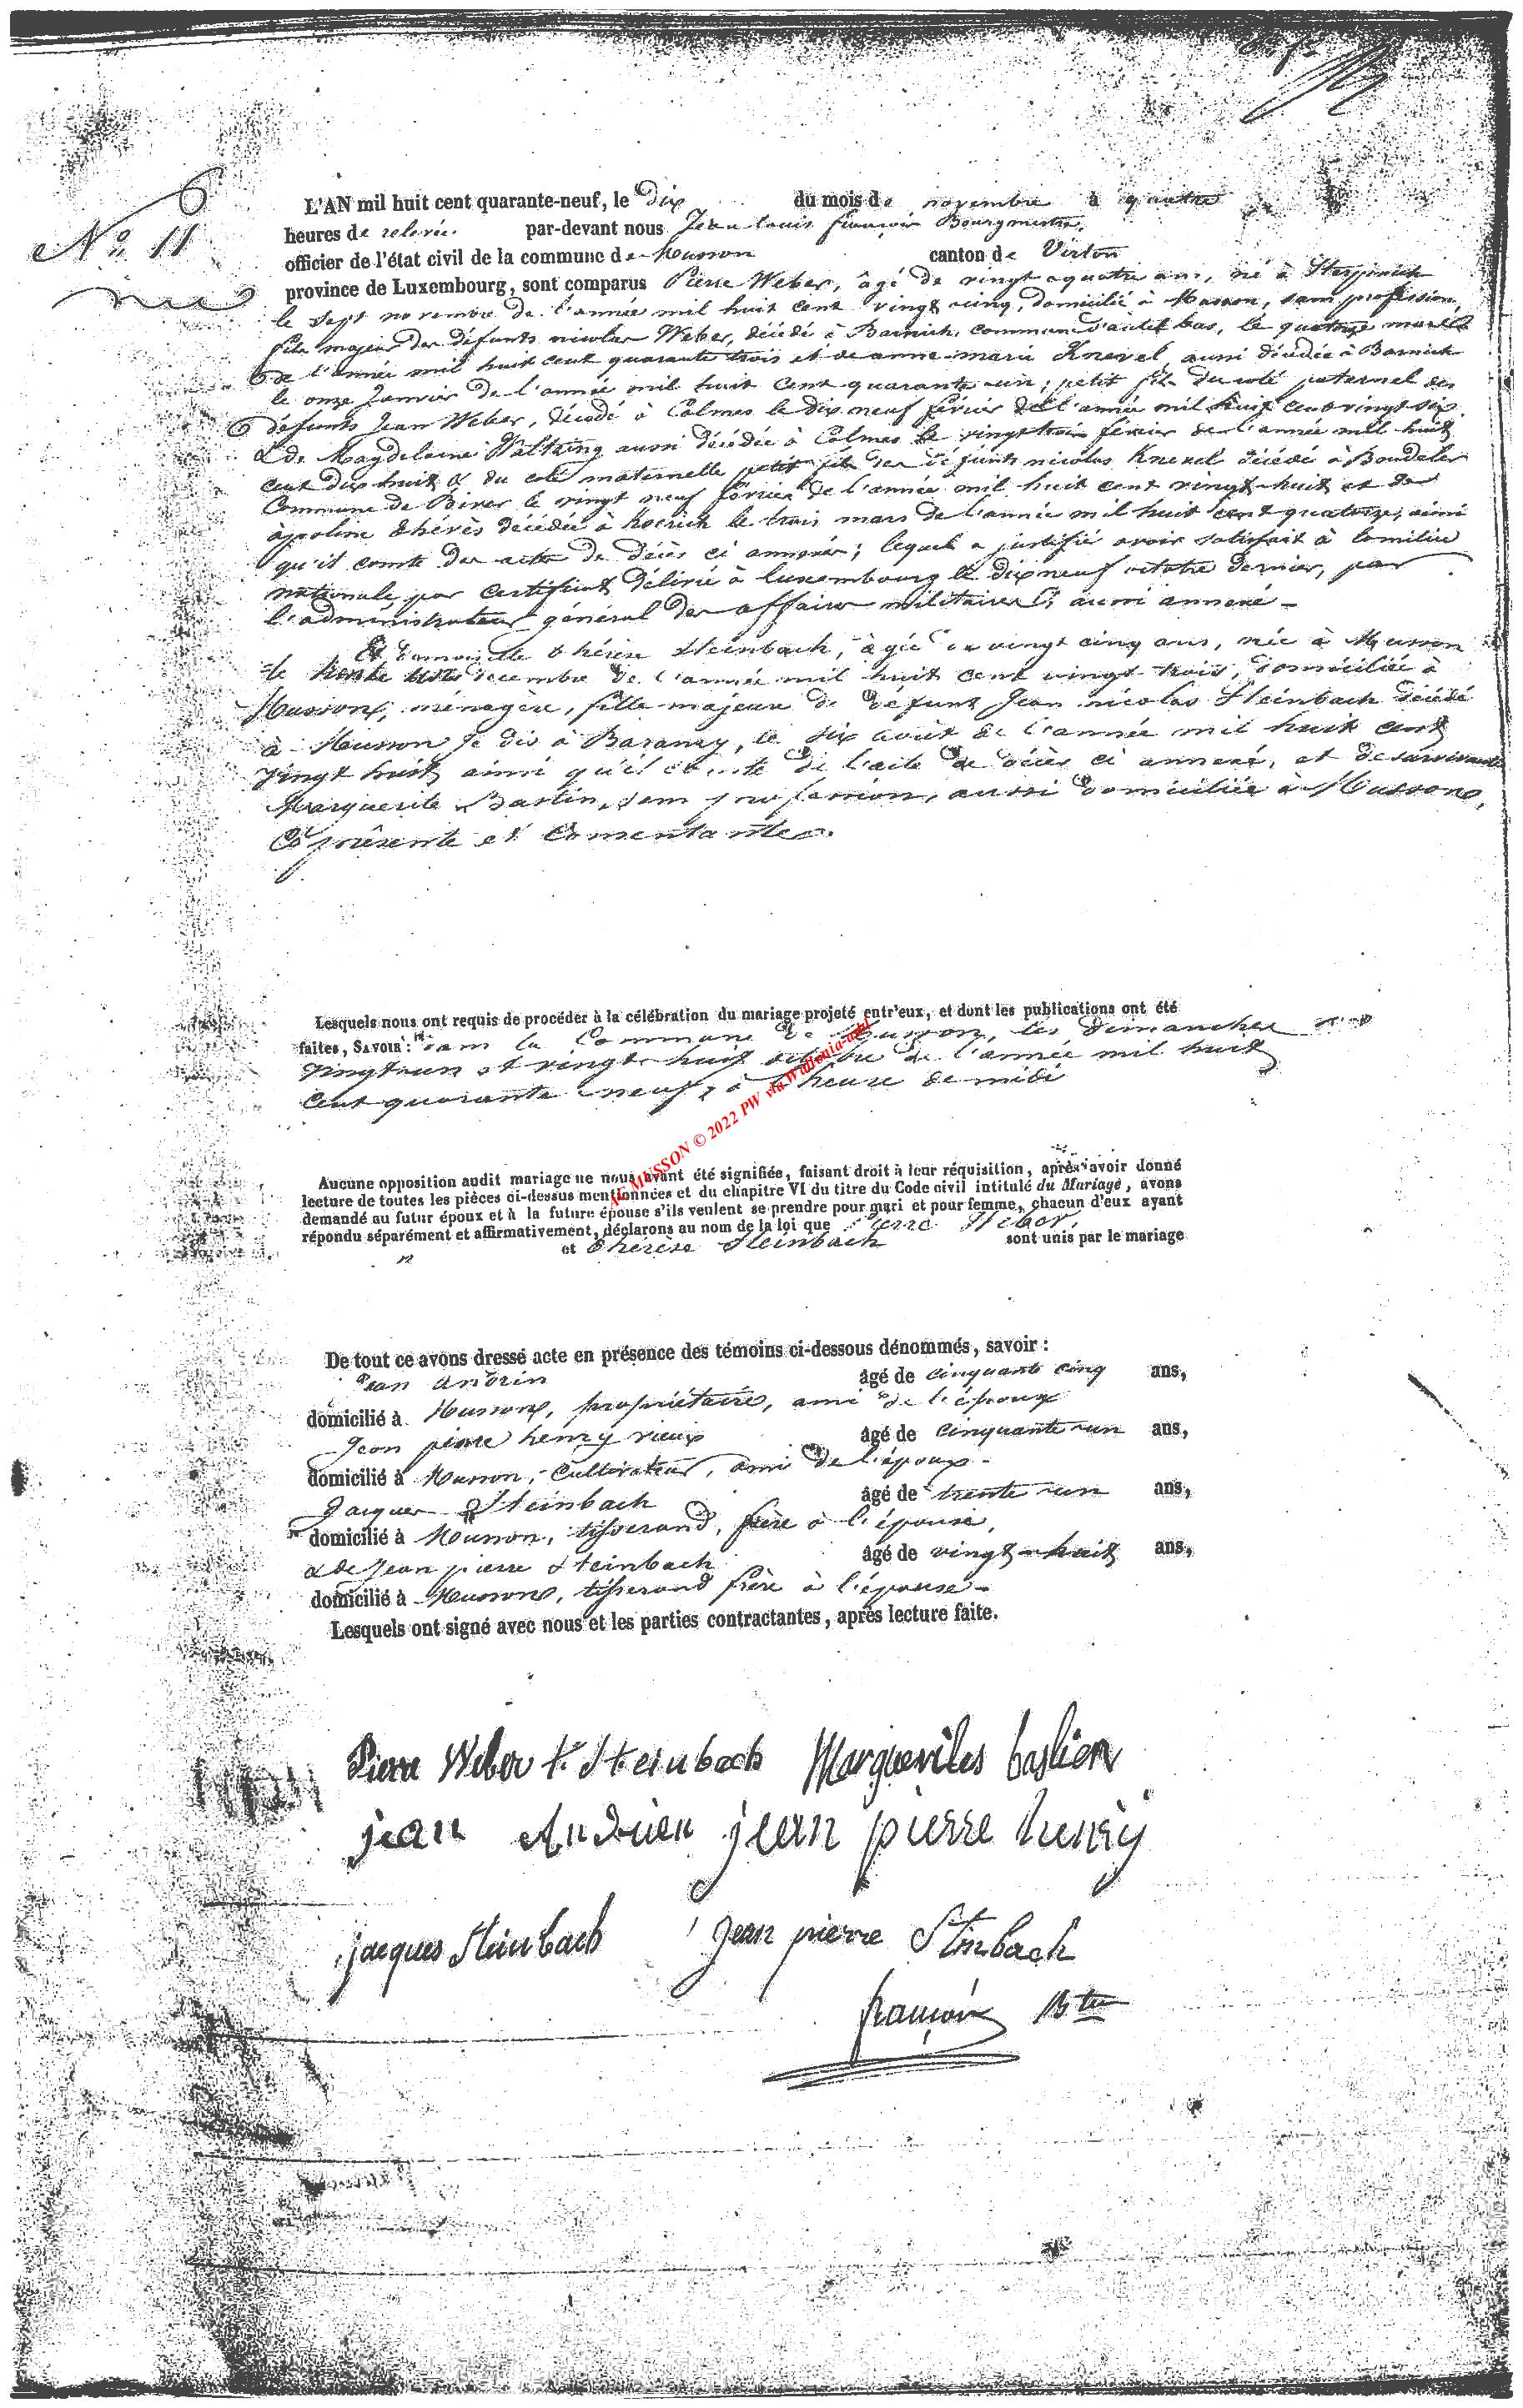 L'AN mil huit cent quarante-neuf, le Dix du mois de novembre à quatre
No. 11
heures de relevée par-devant nous Jean louis françois Bourgmestre,
officier de l'état civil de la commune de Musson canton de Virton
province de Luxembourg, sont comparus Pierre Weber, âgé de vingt quatre ans, né à Sterpenich
le sept novembre de l'année mil huit cent vingt cinq, domicilié à Musson, sans profession,
fils majeur des défunts nicolas Weber, décédé à Barnich, commune d'autel bas, le quatorze mars
de l'année mil huit cent quarante trois et de anne-marie Knevel, aussi décédée à Barnich
le onze Janvier de l'année mil huit cent quarante un; petit fils du coté paternel des
défunts Jean Weber, décédé à Colmar le dix neuf février de l'année mil huit cent vingt six
& de Magdelaine Waltzing aussi décédée à Colmar le vingt trois février de l'année mil huit
cent dix huit & du coté maternelle petit fils des défunts nicolas Knevel décédé à Boudeler
Commune de Biver le vingt neuf février de l'année mil huit cent vingt-huit et de
apoline thérès décédée à Koerich le trois mars de l'année mil huit cent quatorze; ainsi
qu'il conste des actes de décès ci annexés; lequel a justifié avoir satisfait à la milice
nationale par certificat délivré à luxembourg le dix neuf octobre dernier, par
l'administrateur général des affaires militaires aussi annexé -
Et demoiselle thérèse Steinbach, âgée de vingt cinq ans, née à Musson
le trente decembre de l'année mil huit cent vingt trois, domiciliée à
Musson, ménagère, fille majeure de défunt Jean nicolas Steinbach décédé
à Musson je dis à Baranzy, le six août de l'année mil huit cent
vingt huit ainsi qu'il conste de l'acte de décès ci annexé, et de survivante
Marguerite Bastin, sans profession, aussi domiciliée à Musson,
Ci présente et Consentante.
Lesquels nous ont requis de procéder à la célébration du mariage projeté entr'eux, et dont les publications ont été
faites, SAVOIR: dans la Commune de Musson, les dimanches
vingt un et vingt-huit octobre de l'année mil huit
cent quarante neuf, à l'heure de midi
AC MUSSON © 2022 PW via Wallonia-asbl
Aucune opposition audit mariage ne nous ayant été signifiée, faisant droit à leur réquisition, après avoir donné
lecture de toutes les pièces ci-dessus mentionnées et du chapitre VI du titre du Code civil intitulé du Mariage, avons
demandé au futur époux et à la future épouse s'ils veulent se prendre pour mari et pour femme, chacun d'eux ayant
répondu séparément et affirmativement, déclarons au nom de la loi que Pierre Weber,
et thérèse Steinbach sont unis par le mariage
De tout ce avons dressé acte en présence des témoins ci-dessous dénommés, savoir :
Jean andrin âgé de cinquante cinq ans,
domicilié à Musson, propriétaire, ami de l'époux
Jean pierre henry vieux âgé de cinquante-un ans,
domicilié à Musson, Cultivateur, ami de l'époux -
Jacques Steinbach âgé de trente-un ans,
domicilié à Musson, tisserand, frère à l'épouse,
& de Jean pierre Steinbach âgé de vingt-huit ans,
domicilié à Musson, tisserand frère à l'épouse -
Lesquels ont signé avec nous et les parties contractantes, après lecture faite.
Pierre Weber t. Steinbach Margueriles bastien
jean Andrien jean pierre henry
jacques Steinbach Jean pierre Stinbach
françois Btre